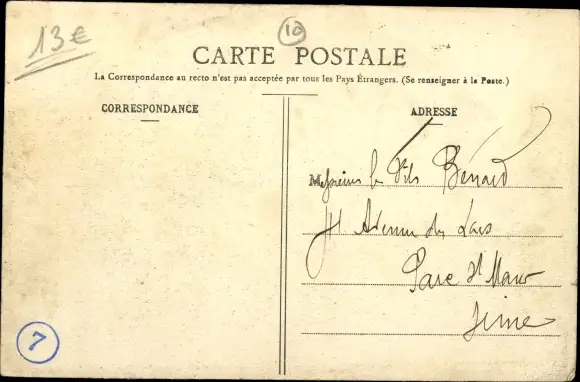 13€
10
CARTE POSTALE
La Correspondance au recto n'est pas acceptée par tous les Pays Étrangers. (Se renseigner à la Poste.)
CORRESPONDANCE
ADRESSE
Bénard
Avenue du
Parc St Maur
Seine
7